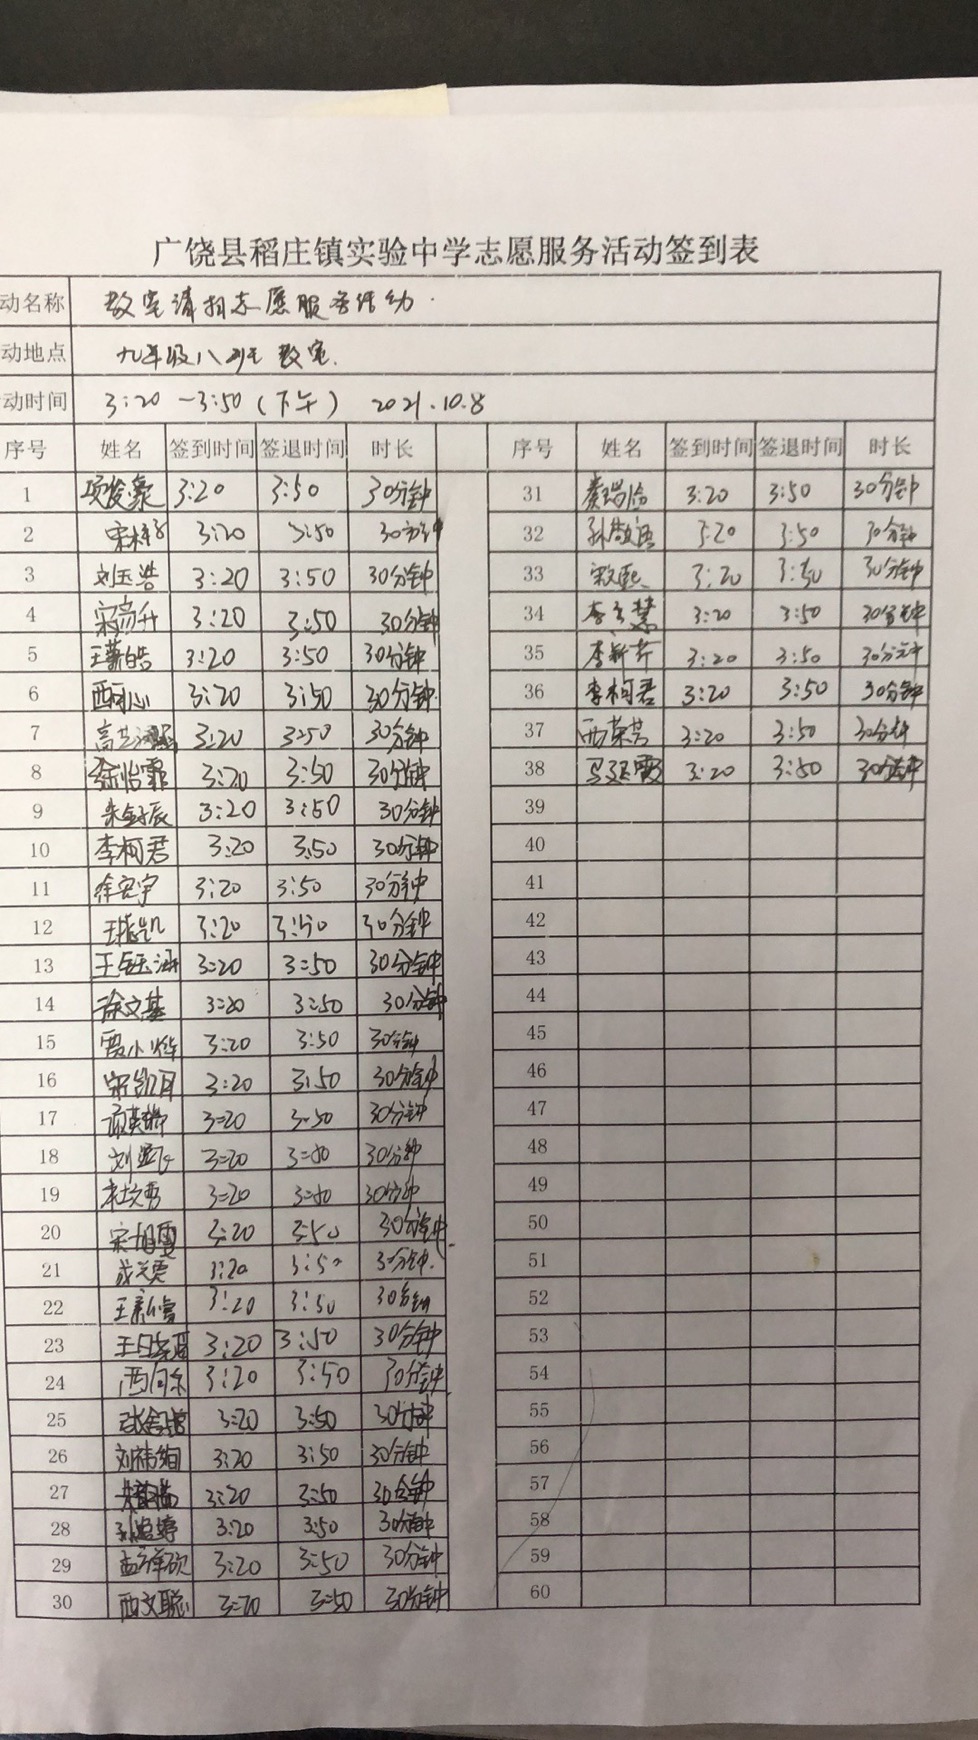 广饶县稻庄镇实验中学志愿服务活动签到表
动名称 教室清扫志愿服务活动
动地点 九年级八班 教室.
动时间 3:20 -3:50 (下午) 2021.10.8
序号 姓名 签到时间 签退时间 时长 序号 姓名 签到时间 签退时间 时长
1 项俊豪 3:20 3:50 30分钟 31 3:20 3:50 30分钟
2 3:20 3:50 30分钟 32 孙敬语 3:20 3:50 30分钟
3 刘玉浩 3:20 3:50 30分钟 33 3:20 3:50 30分钟
4 宋高升 3:20 3:50 30分钟 34 3:20 3:50 30分钟
5 王新皓 3:20 3:50 30分钟 35 李新芹 3:20 3:50 30分钟
6 3:20 3:50 30分钟 36 李柯君 3:20 3:50 30分钟
7 3:20 3:50 30分钟 37 西荣芳 3:20 3:50 30分钟
8 徐怡霏 3:20 3:50 30分钟 38 马延霞 3:20 3:50 30分钟
9 3:20 3:50 30分钟 39
10 李柯君 3:20 3:50 30分钟 40
11 徐宏宇 3:20 3:50 30分钟 41
12 3:20 3:50 30分钟 42
13 3:20 3:50 30分钟 43
14 徐文基 3:20 3:50 30分钟 44
15 贾小烨 3:20 3:50 30分钟 45
16 3:20 3:50 30分钟 46
17 3:20 3:50 30分钟 47
18 3:20 3:50 30分钟 48
19 3:20 3:50 30分钟 49
20 宋旭雪 3:20 3:50 30分钟 50
21 3:20 3:50 30分钟 51
22 王新雪 3:20 3:50 30分钟 52
23 3:20 3:50 30分钟 53
24 3:20 3:50 30分钟 54
25 3:20 3:50 30分钟 55
26 3:20 3:50 30分钟 56
27 3:20 3:50 30分钟 57
28 3:20 3:50 30分钟 58
29 3:20 3:50 30分钟 59
30 西文聪 3:20 3:50 30分钟 60